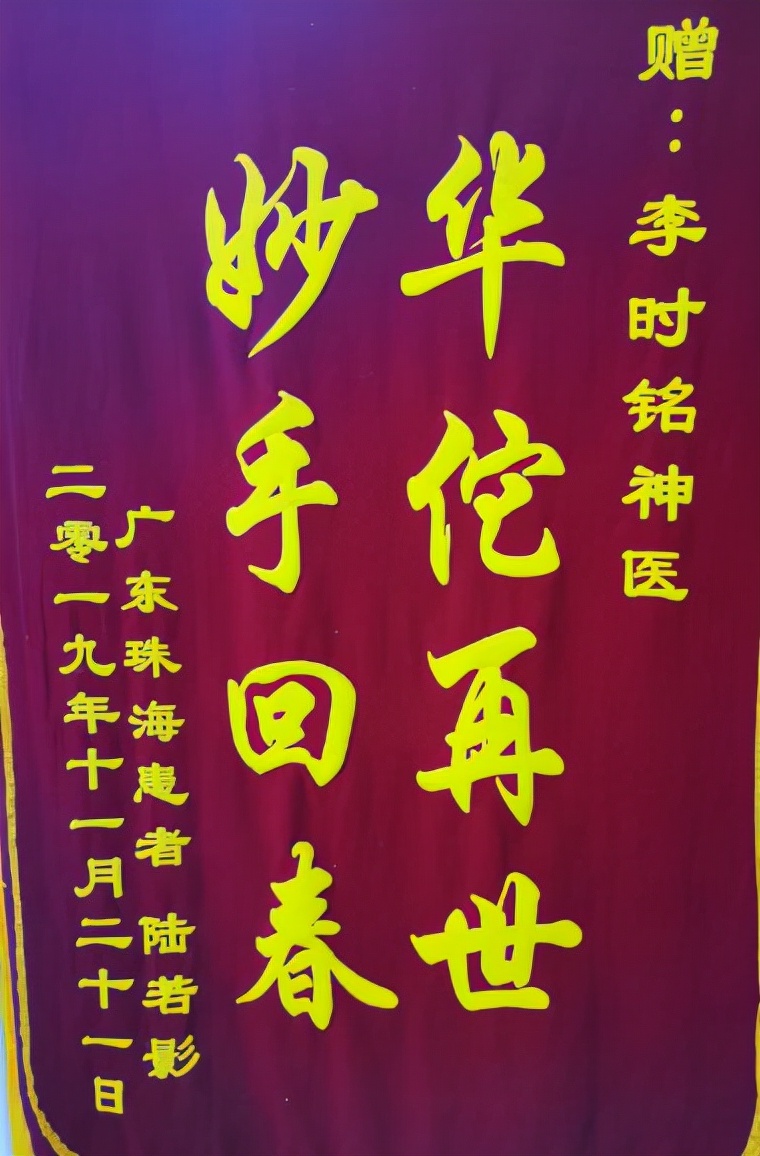 赠：李时铭神医
华佗再世
妙手回春
广东珠海患者 陆若影
二零一九年十一月二十一日